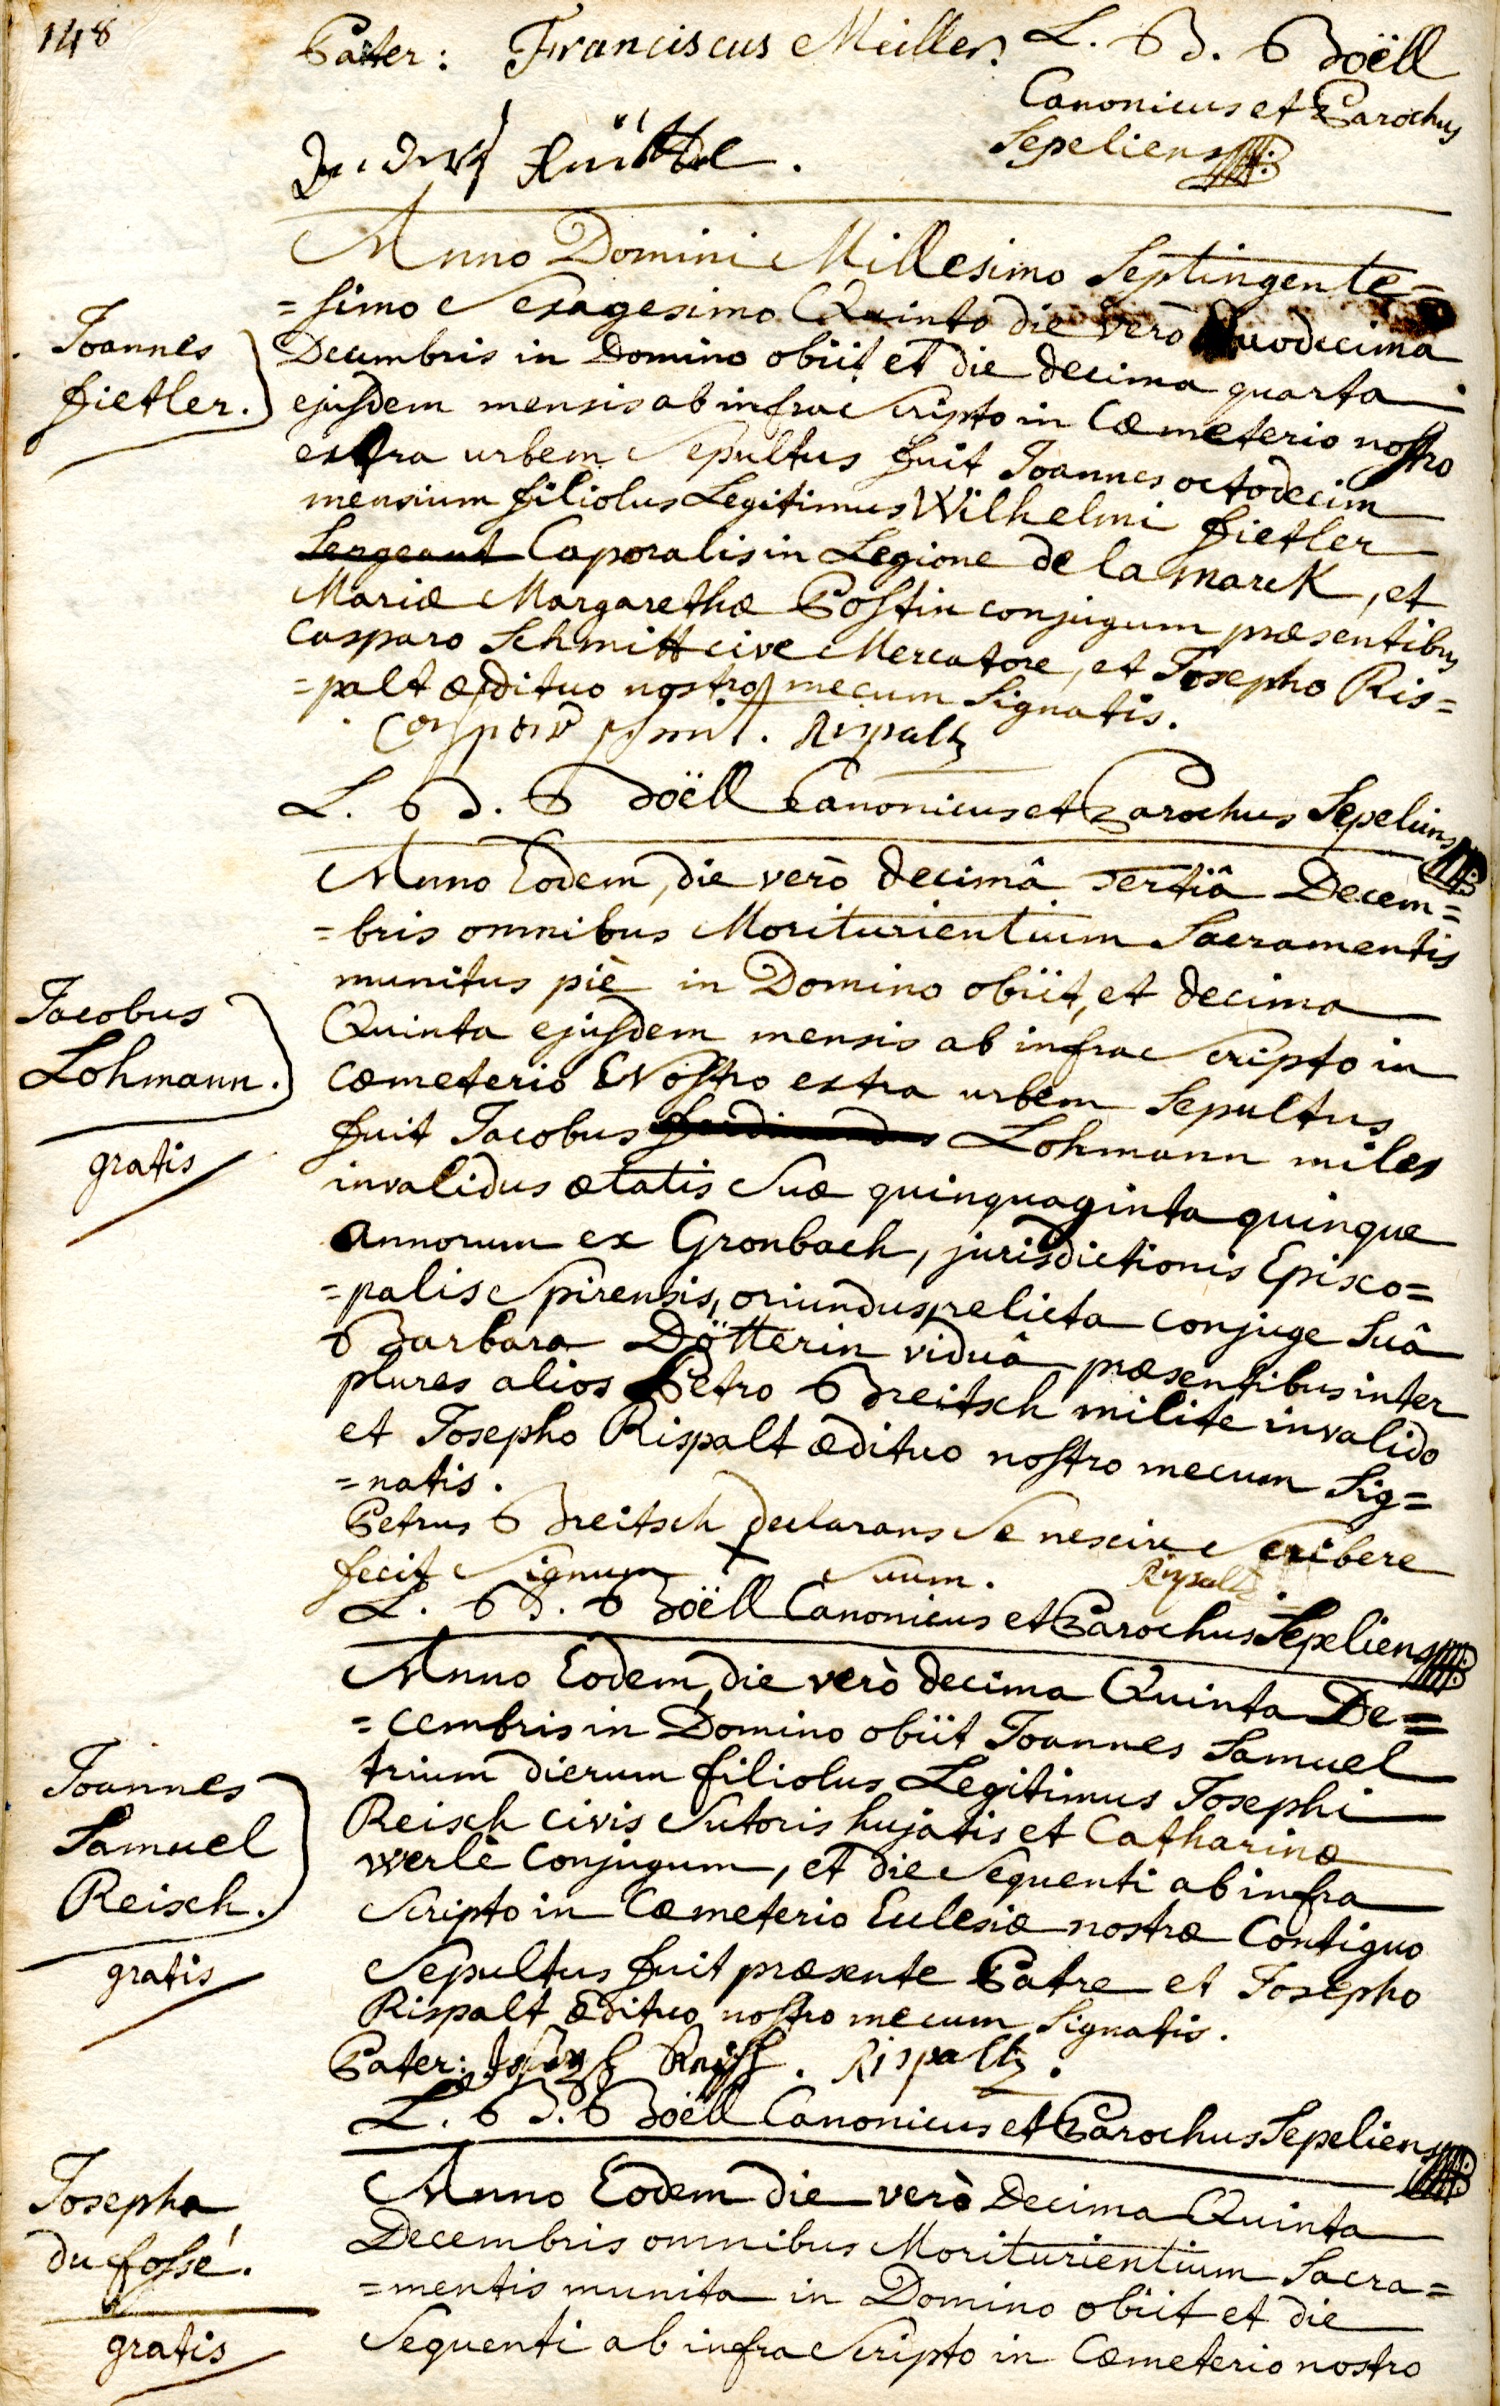 148
Pater: Franciscus Meiller. L. B. Boëll
Canonicus et Parochus
Sepeliens
Anno Domini Millesimo Septingente=
=simo Sexagesimo Quinto die verò duodecima
Joannes
fietler.
Decembris in Domino obiit et die decima quarta
ejusdem mensis ab infra Scripto in Cœmeterio nostro
extra urbem Sepultus fuit Joannes octodecim
mensium filiolus Legitimus Wilhelmi fietler
Sergeant Caporalis in Legione de la marck, et
Mariæ Margarethæ Postin conjugum præsentibus
Casparo Schmitt cive Mercatore, et Josepho Ris=
=palt ædituo nostro mecum Signatis.
Rispaltz
L. B. Boëll Canonicus et Parochus Sepeliens
Anno Eodem, die verò decimâ Tertiâ Decem=
=bris omnibus Moriturientium Sacramentis
munitus piè in Domino obiit, et decima
Jacobus
Lohmann.
gratis
Quinta ejusdem mensis ab infra Scripto in
Cœmeterio Nostro extra urbem Sepultus
fuit Jacobus Lohmann miles
invalidus ætatis Suæ quinquaginta quinque
annorum ex Gronbach, jurisdictionis Episco=
=palis Spirensis, oriundus, relicta conjuge Suâ
Barbara Dötterin viduâ præsentibus inter
plures alios Petro Breitsch milite invalido
et Josepho Rispalt ædituo nostro mecum Sig=
=natis.
Petrus Breitsch declarans Se nescire Scribere
fecit Signum X Suum. Rispaltz.
L. B. Boëll Canonicus et Parochus Sepeliens
Anno Eodem, die verò decima Quinta De=
=cembris in Domino obiit Joannes Samuel
Joannes
Samuel
Reisch.
gratis
trium dierum filiolus Legitimus Josephi
Reisch civis Sutoris hujatis et Catharinæ
werlè Conjugum, et die Sequenti ab infra
Scripto in Cœmeterio Eclesiæ nostræ Contiguo
Sepultus fuit præsente Patre et Josepho
Rispalt ædituo nostro mecum Signatis.
Pater: Joseph Reisch. Rispaltz.
L. B. Boëll Canonicus et Parochus Sepeliens
Josepha
du fossé.
gratis
Anno Eodem die verò Decima Quinta
Decembris omnibus Moriturientium Sacra=
=mentis munita in Domino obiit et die
Sequenti ab infra Scripto in Cœmeterio nostro